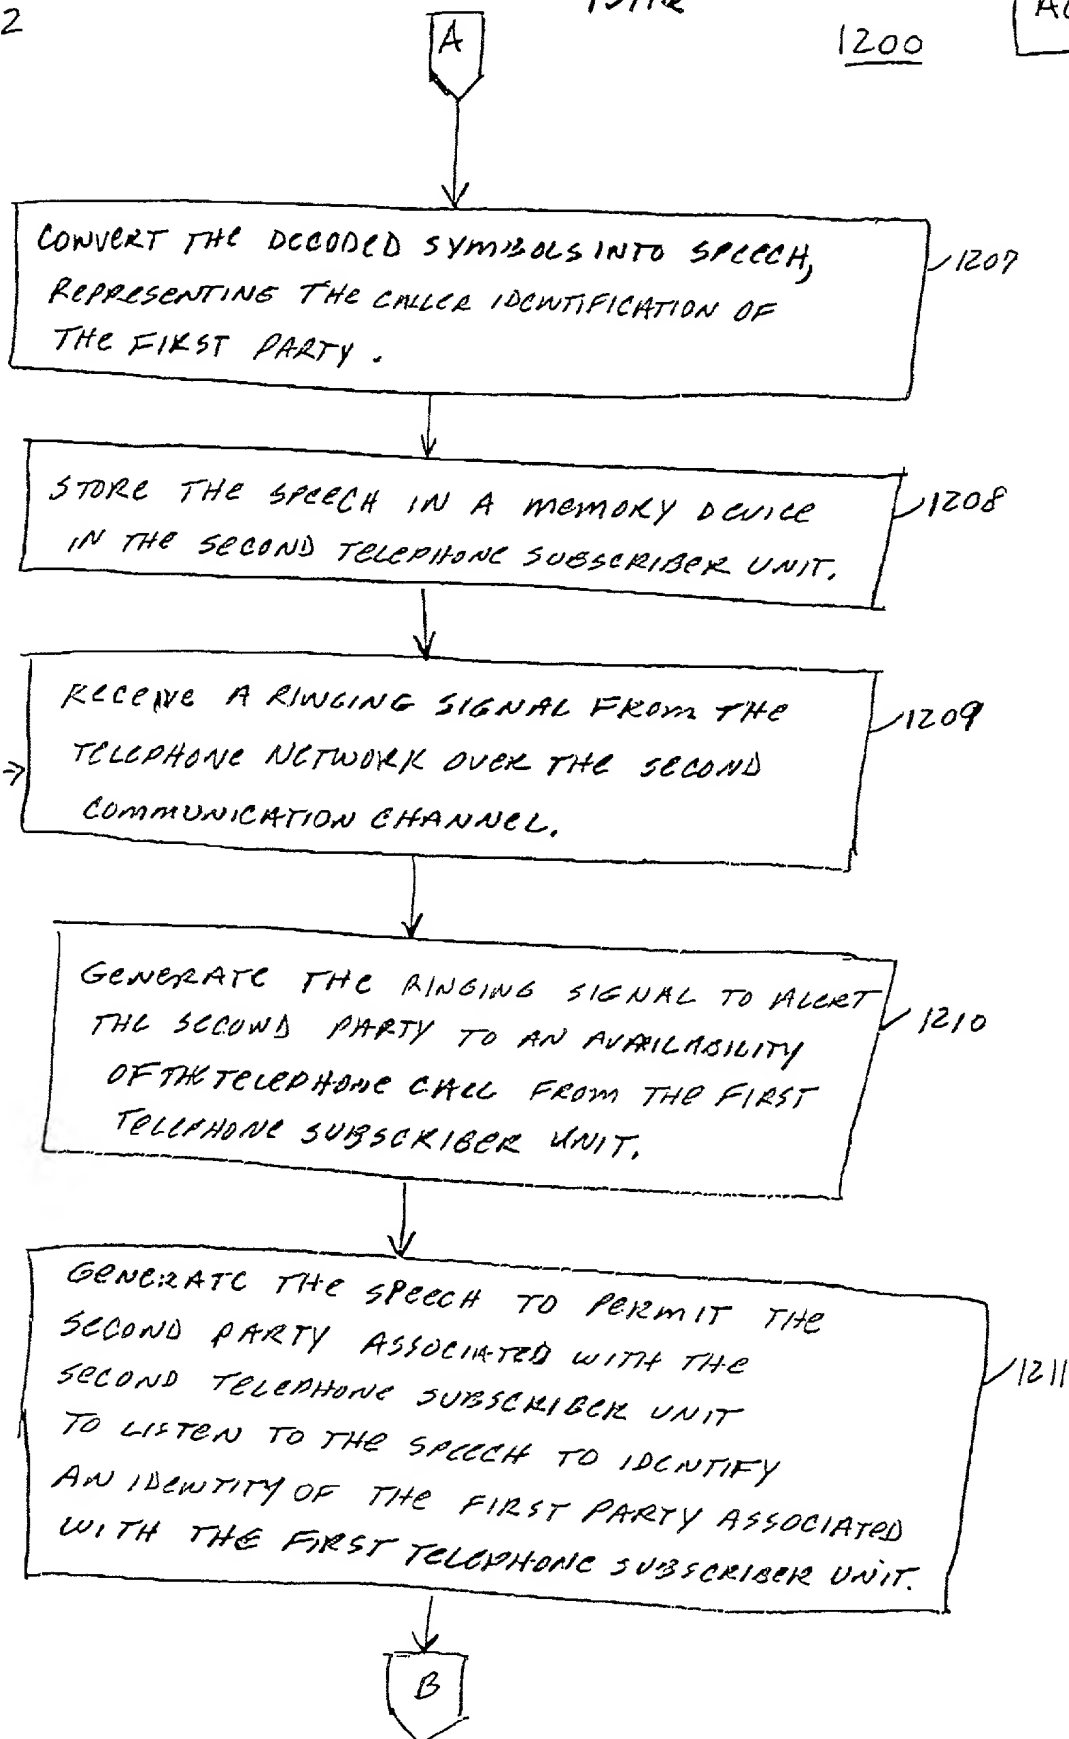 2
1200
A
CONVERT THE DECODED SYMBOLS INTO SPEECH,
REPRESENTING THE CALLER IDENTIFICATION OF
THE FIRST PARTY.
1207
STORE THE SPEECH IN A MEMORY DEVICE
IN THE SECOND TELEPHONE SUBSCRIBER UNIT.
1208
RECEIVE A RINGING SIGNAL FROM THE
TELEPHONE NETWORK OVER THE SECOND
COMMUNICATION CHANNEL.
1209
GENERATE THE RINGING SIGNAL TO ALERT
THE SECOND PARTY TO AN AVAILABILITY
OF THE TELEPHONE CALL FROM THE FIRST
TELEPHONE SUBSCRIBER UNIT.
1210
GENERATE THE SPEECH TO PERMIT THE
SECOND PARTY ASSOCIATED WITH THE
SECOND TELEPHONE SUBSCRIBER UNIT
TO LISTEN TO THE SPEECH TO IDENTIFY
AN IDENTITY OF THE FIRST PARTY ASSOCIATED
WITH THE FIRST TELEPHONE SUBSCRIBER UNIT.
1211
B